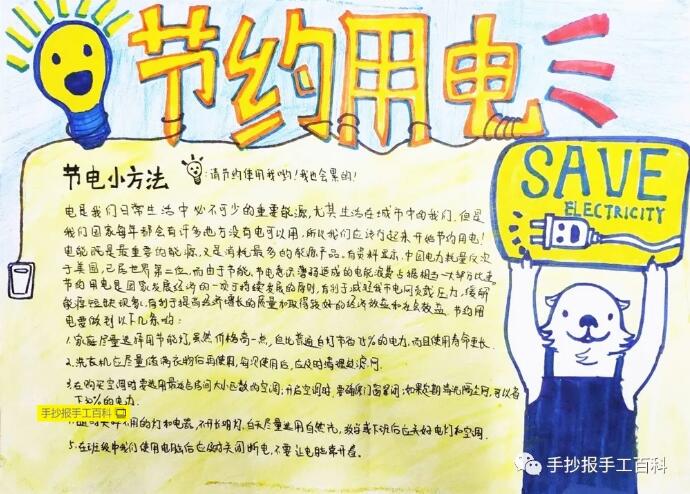 节约用电
SAVE
ELECTRICITY
节电小方法
请节约使用我哟!我也会累的!
电是我们日常生活中必不可少的重要能源,尤其生活在城市中的我们.但是
我们国家每年都会有许多地方没有电可以用,所以我们应该行起来开始节约用电!
电能既是最重要的能源,又是消耗最多的能源产品.有资料显示,中国电力耗量仅次
于美国,已居世界第二位,而由于节能、节电意识薄弱造成的电能浪费占据相当一大部分比重.
节约用电是国家发展经济的一项持续发展的原则,有利于减轻城市电网负载压力,缓解
能源短缺现象,有利于提高经济增长的质量和取得较好的经济效益和社会效益.节约用
电需做到以下几条哟:
1.家庭尽量选择用节能灯,虽然价格高一点,但比普通白灯节省75%的电力,而且使用寿命更长.
2.洗衣机应尽量值满衣物后再使用,每次使用后,应及时清理过滤网.
3.在购买空调时要选用最适合房间大小匹数的空调;开启空调时,要确保门窗紧闭;如果定期清洗隔尘网,可以省
下30%的电力.
不用的灯和电器,不开长明灯,白天尽量选用自然光,放学或下班后应关好电灯和空调.
5.在班级中我们使用电脑后应及时关闭断电,不要让电脑常开着.
手抄报手工百科
手抄报手工百科